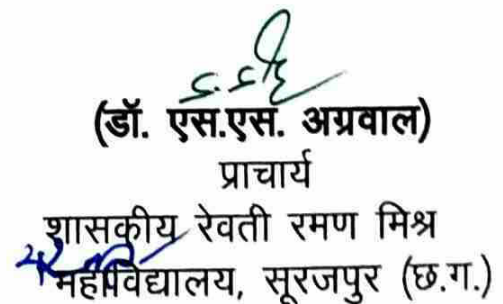 (डॉ. एस.एस. अग्रवाल)
प्राचार्य
शासकीय रेवती रमण मिश्र
महाविद्यालय, सूरजपुर (छ.ग.)